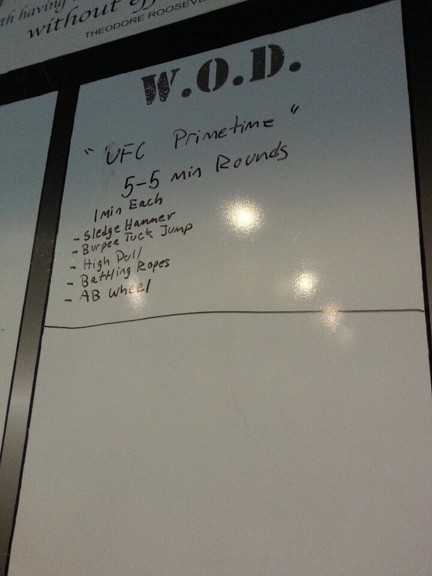 th having
without
THEODORE ROOSEV
W.O.D.
"UFC Primetime"
5-5 min Rounds
1 Min Each
- Sledge Hammer
- Burpee Tuck Jump
- High Pull
- Battling Ropes
- AB Wheel